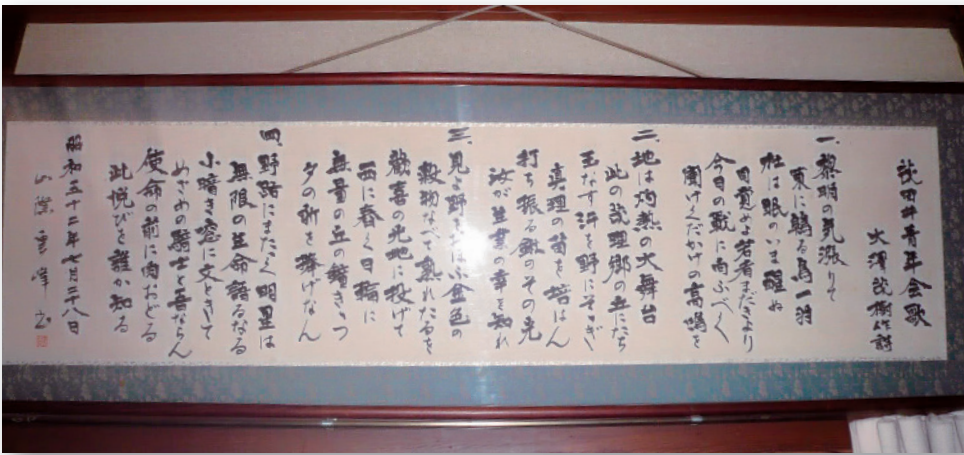 読田井青年会歌
大澤 樹作詩
一、黎明の気漲りて
東に鶴る鳥一羽
社は眠のいま醒ぬ
自覚めよ若者まだきより
今日の戦に向ふべく
聞けくだかけの高鳴を
二、地は灼熱の大舞台
此の 理郷の丘にたち
玉なす汗を野にそゝぎ
真理の苗を培はん
打ち振る鍬のその光
汝が生業の幸を知れ
三、見よ野をおほふ金色の
穀物なべて熟れたるを
歓喜の光地に投げて
西に舂く日輪に
無量の丘の きつつ
夕の祈を捧げなん
四、野路にまたゝく明星は
無限の生命語るなる
小暗き窓に文ときて
めざめの騎士と喜ならん
使命の前に肉おどる
此悦びを誰か知る
昭和五十二年七月二十八日
雲峰書